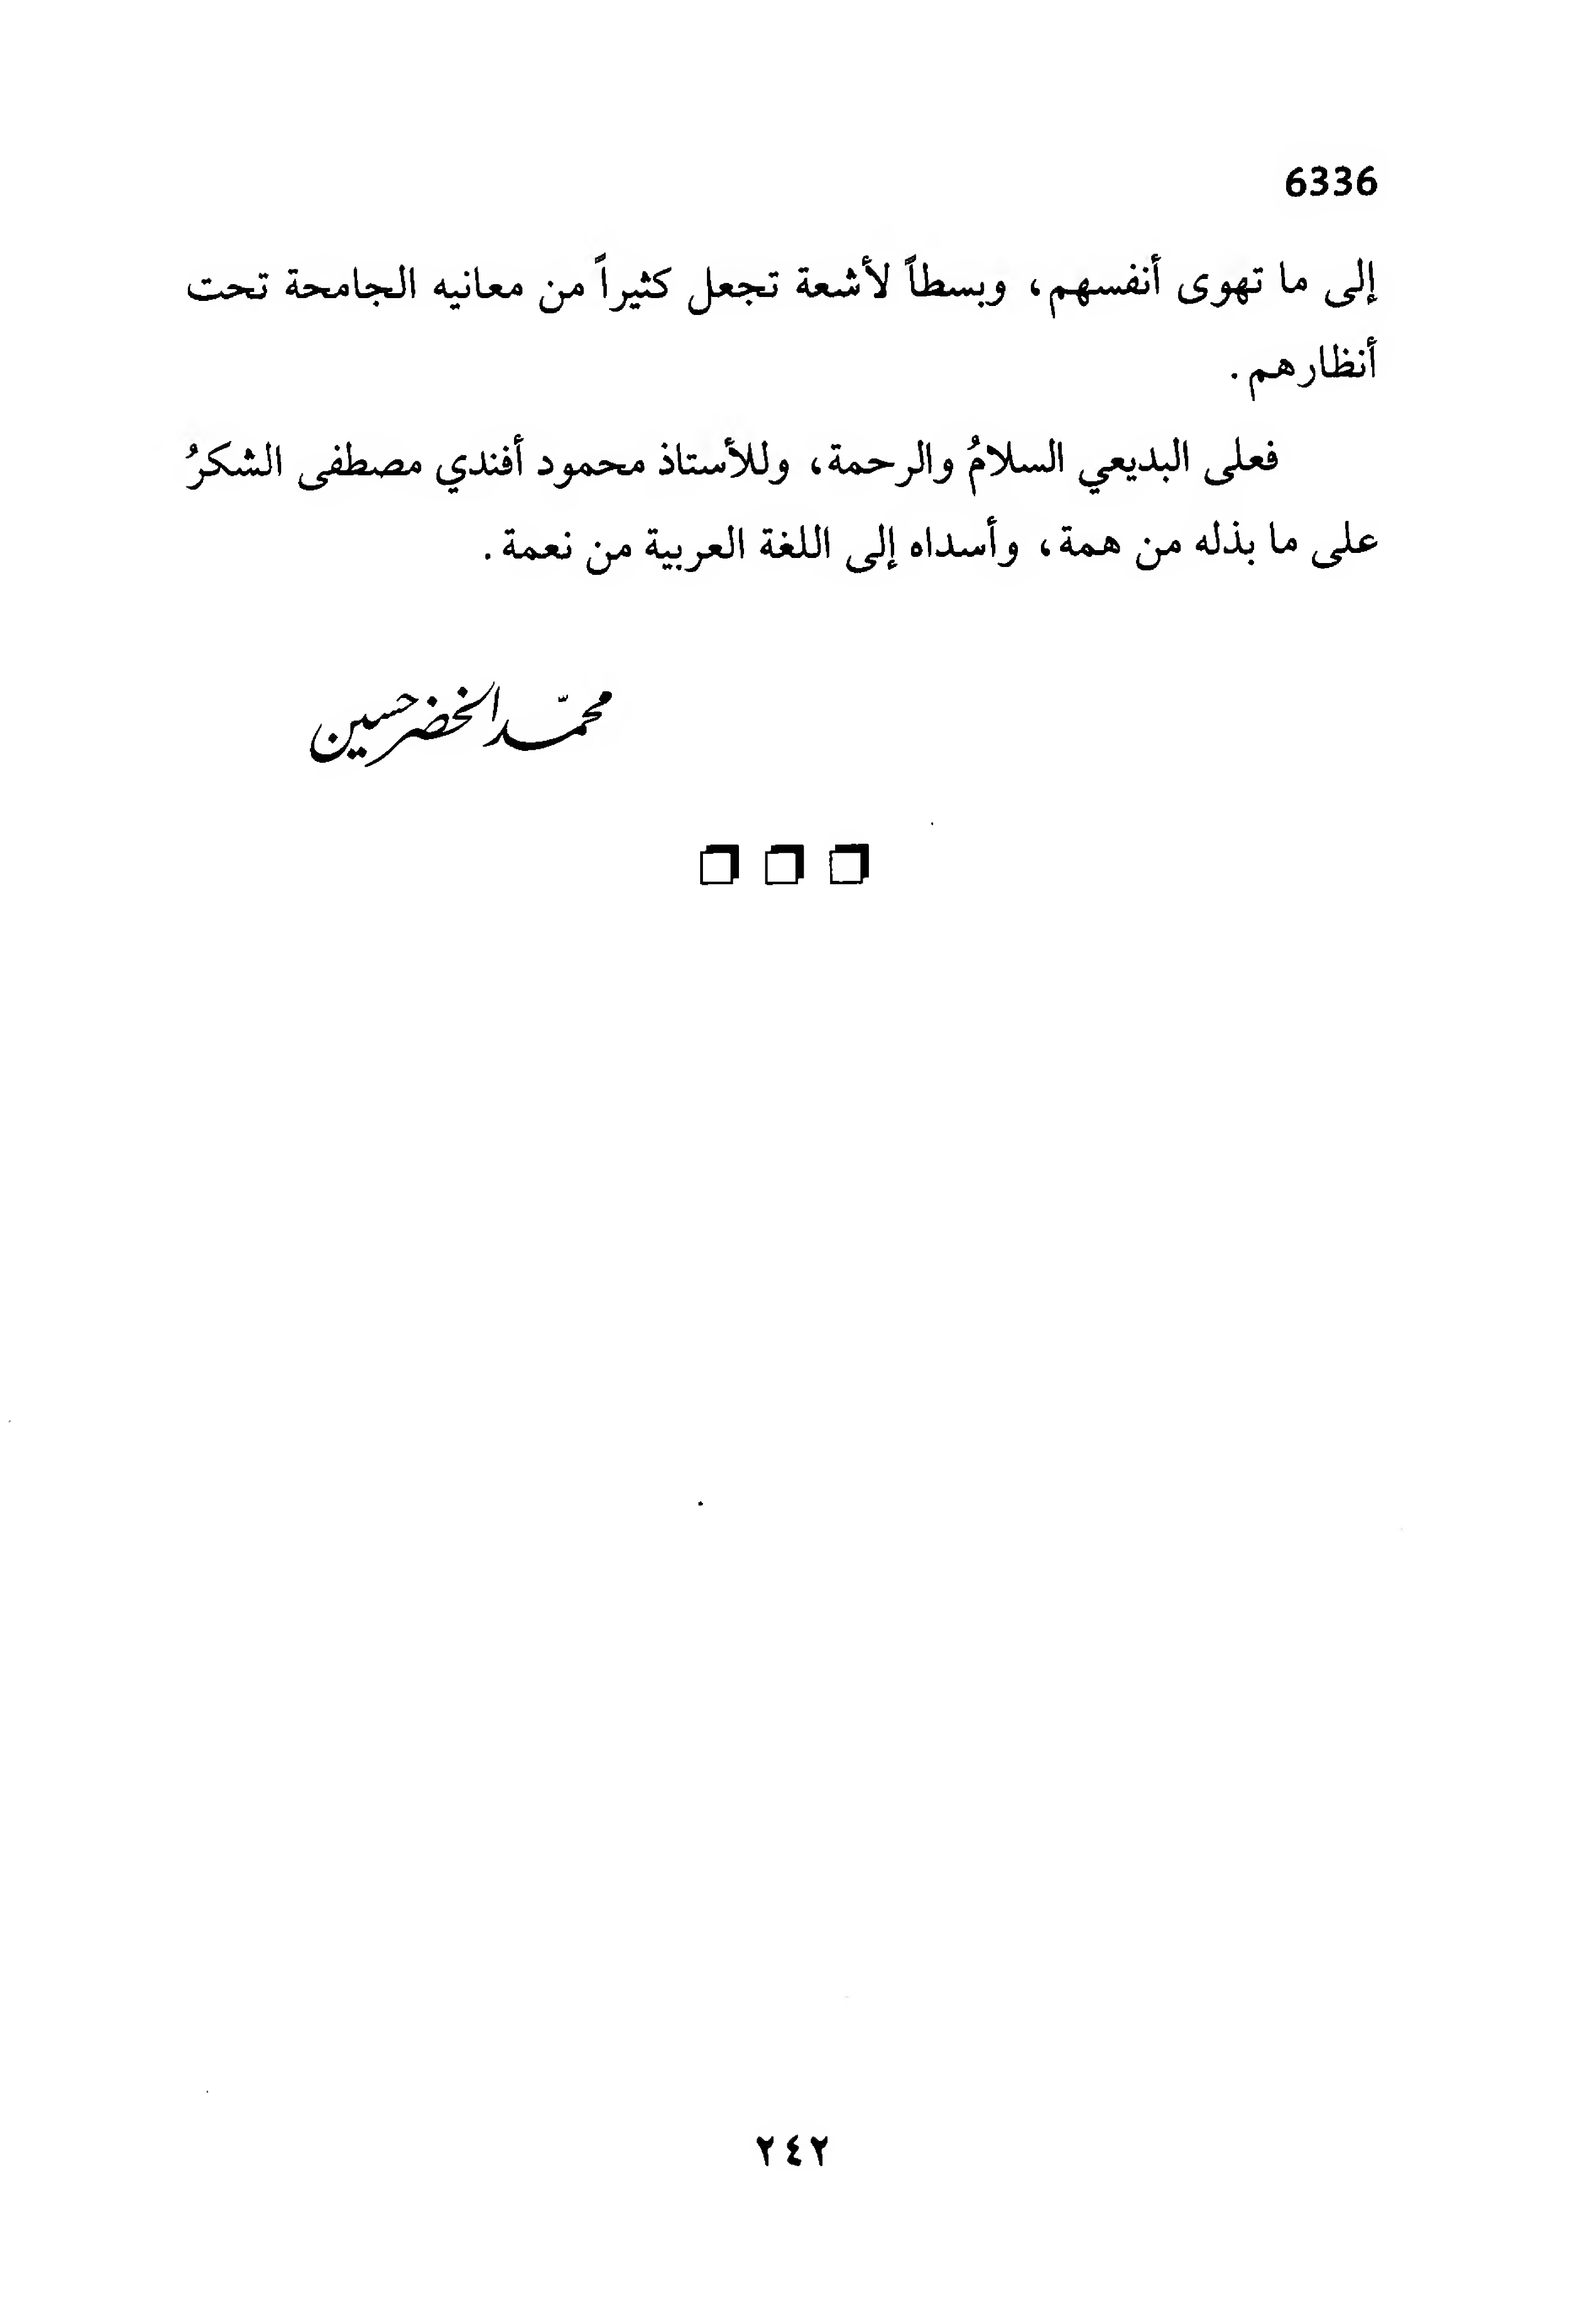 6336
إلى ما تهوى أنفسهم، وبسطاً لأشعة تجعل كثيراً من معانيه الجامحة تحت
أنظارهم.
فعلى البديعي السلامُ والرحمة، وللأستاذ محمود أفندي مصطفى الشكرُ
على ما بذله من همة، وأسداه إلى اللغة العربية من نعمة.
محمّد الخضر حسين
٢٤٢